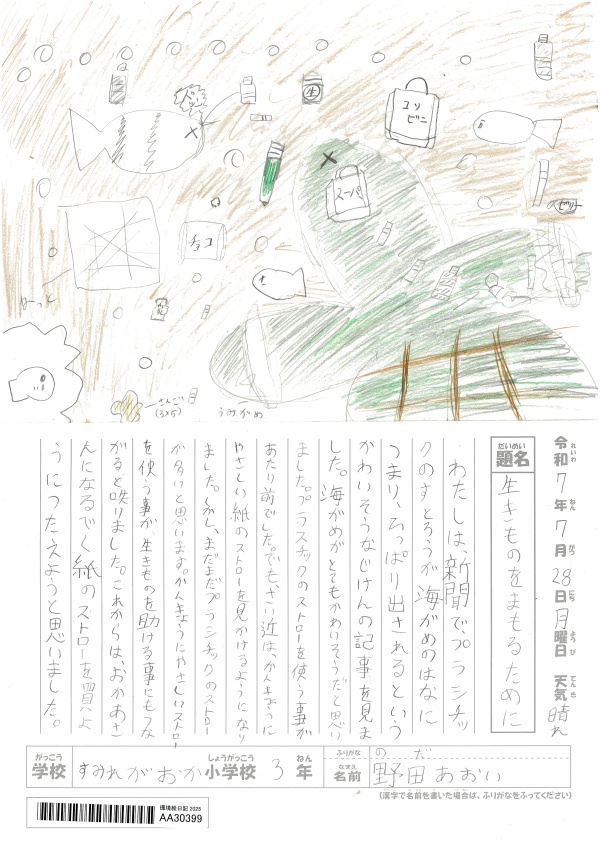 生
コンビニ
スーパー
チョコ
ゼリー
さんご
うみがめ
令和7年7月28日月曜日 天気 晴れ
れいわ ねん がつ にち ようび てんき
だいめい
題名
生きものをまもるために
わたしは、新聞で、プラシチッ
クのすとろうが海がめのはなに
つまり、ひっぱり出されるという
かわいそうなじけんの記事を見ま
した。海がめがとてもかわいそうだと思い
ました。プラスチックのストローを使う事が
あたり前でした。でも、さい近は、かんきょうに
やさしい紙のストローを見かけるようになり
ました。しかし、まだまだプラシチックのストロー
が多いと思います。かんきょうにやさしいストロー
を使う事が、生きものを助ける事にもつな
がると
りました。これからは、おかあさ
んになるべく紙のストローを買うよ
うにつたえようと思いました。
がっこう しょうがっこう ねん
学校 すみれがおか小学校 3年
ふりがな のだ
なまえ
名前 野田あおい
(漢字で名前を書いた場合は、ふりがなをふってください)
環境絵日記2025
AA30399